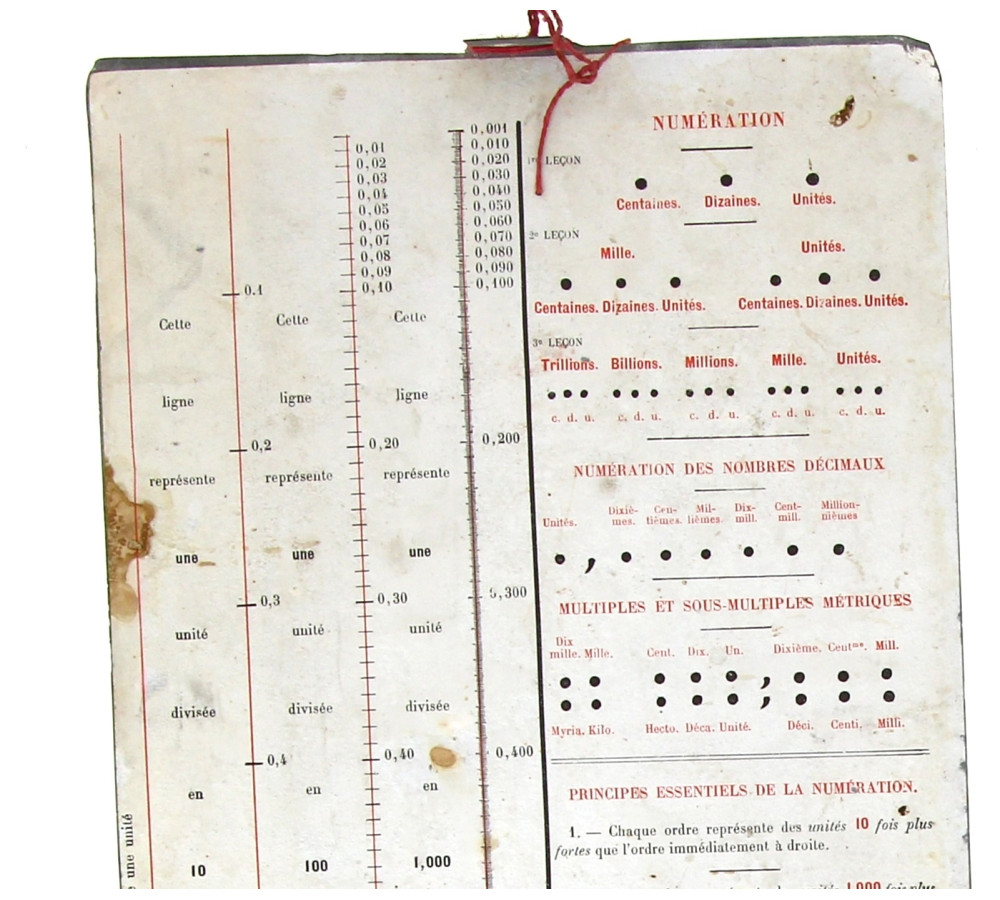 0,01
0,02
0,03
0,04
0,05
0,06
0,07
0,08
0,09
0,10
0,001
0,010
0,020
0,030
0,040
0,050
0,060
0,070
0,080
0,090
0,100
0.1
Cette Cette Cette
ligne ligne ligne
0,2 0,20 0,200
représente représente représente
une une une
0,3 0,30 0,300
unité unité unité
divisée divisée divisée
0,4 0,40 0,400
en en en
10 100 1,000
une unité
NUMÉRATION
1re LEÇON
Centaines. Dizaines. Unités.
2e LEÇON
Mille. Unités.
Centaines. Dizaines. Unités. Centaines. Dizaines. Unités.
3e LEÇON
Trillions. Billions. Millions. Mille. Unités.
c. d. u. c. d. u. c. d. u. c. d. u. c. d. u.
NUMÉRATION DES NOMBRES DÉCIMAUX
Dixiè- Cen- Mil- Dix- Cent- Million-
Unités. mes. tièmes. lièmes. mill. mill. nièmes
,
MULTIPLES ET SOUS-MULTIPLES MÉTRIQUES
Dix
mille. Mille. Cent. Dix. Un. Dixième. Centme. Mill.
,
,
Myria. Kilo. Hecto. Déca. Unité. Déci. Centi. Milli.
PRINCIPES ESSENTIELS DE LA NUMÉRATION.
1. — Chaque ordre représente des unités 10 fois plus
fortes que l'ordre immédiatement à droite.
1,000 fois plus